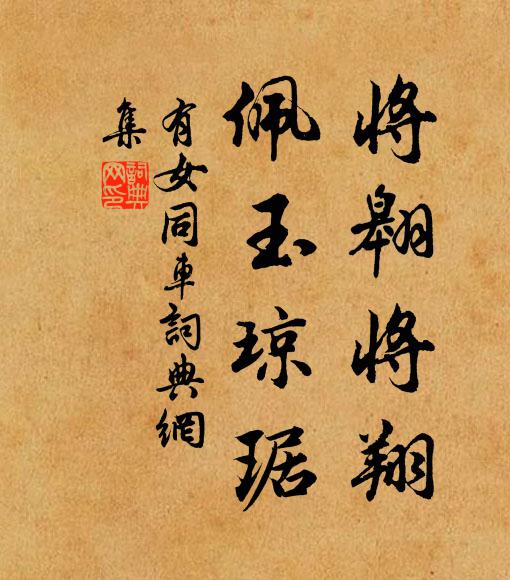 将翱将翔
佩玉琼琚
有女同車詞典網
集
詞典网印